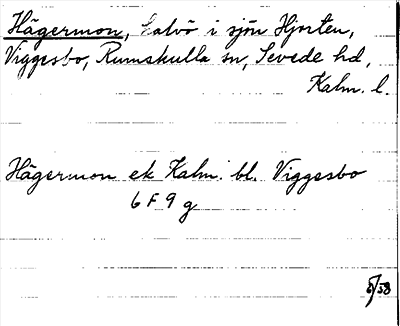 Hägermon, halvö i sjön Hjorten,
Viggesbo, Rumskulla sn, Sevede hd,
Kalm. l.
Hägermon ek Kalm. bl. Viggesbo
6 F 9 g
5/58